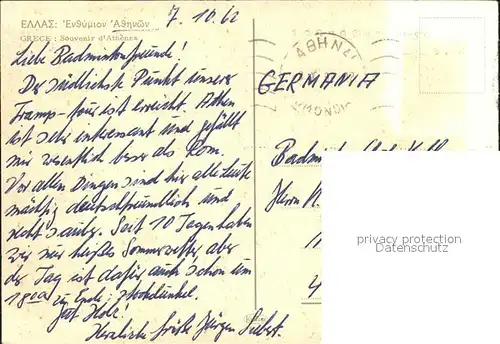 ΕΛΛΑΣ: Ἐνθύμιον Ἀθηνῶν
GRECE : Souvenir d'Athènes
7.10.62
Liebe Badmintonfreunde!
Der südlichste Punkt unserer
Tramp-tour ist erreicht. Athen
ist sehr interessant und gefällt
mir wesentlich besser als Rom.
Vor allen Dingen sind hier alle Leute
mächtig deutschfreundlich und
recht sauber. Seit 10 Tagen haben
wir nur heißes Sommerwetter aber
der Tag ist dafür auch schon um
18 00 zu Ende: stockdunkel.
Gut Holz!
Herzliche Grüße Jürgen
ΑΘΗΝΑΙ
GERMANIA
Herrn
privacy protection
Datenschutz